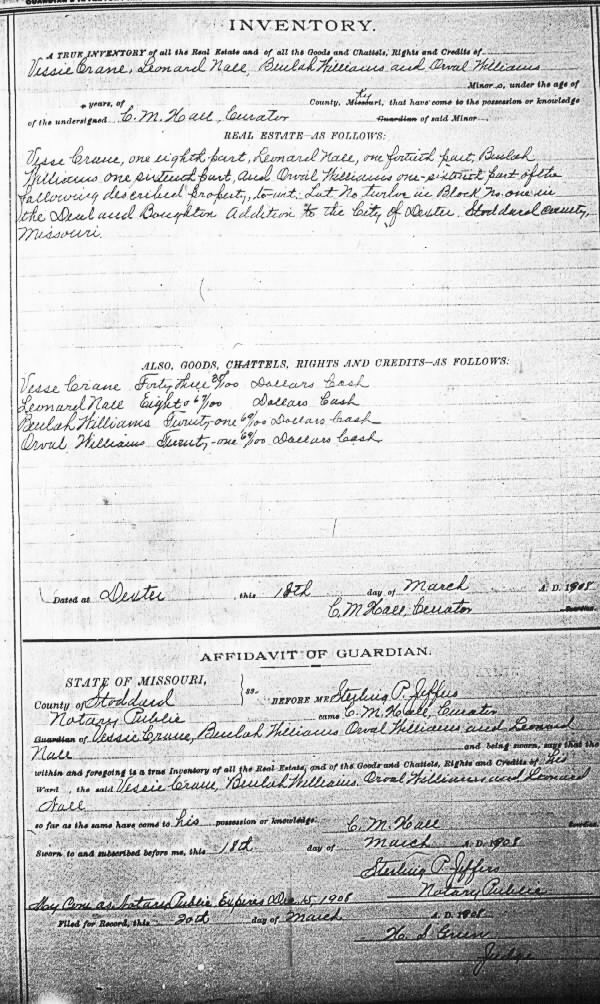 INVENTORY.
A TRUE INVENTORY of all the Real Estate and of all the Goods and Chattels, Rights and Credits of
Vessie Crane, Leonard Nall, Beulah Williams and Orval Williams
Minor s, under the age of
years, of County, Missouri, that have come to the possession or knowledge
of the undersigned C. M. Hall, Curator Guardian of said Minor
REAL ESTATE—AS FOLLOWS:
Vesse Crane, one eighth part, Leonard Nall, one fortieth part, Beulah
Williams one sixteenth part, and Orval Williams one-sixteenth part of the
following described property, to-wit: Lot No twelve in Block No. one in
the Daul and Boughton Addition to the City of Dexter. Stoddard County,
Missouri.
ALSO, GOODS, CHATTELS, RIGHTS AND CREDITS—AS FOLLOWS:
Vesse Crane Forty three /00 Dollars Cash
Leonard Nall Eight & 67/00 Dollars Cash
Beulah Williams Twenty-one 69/00 Dollars Cash
Orval Williams Twenty-one 69/00 Dollars Cash
Dated at Dexter this 18th day of March A. D. 1908
C. M Hall Curator
AFFIDAVIT OF GUARDIAN.
STATE OF MISSOURI,
County of Stoddard ss. BEFORE ME Sterling P. Jeffers
Notary Public came C. M. Hall, Curator
Guardian of Vessie Crane, Beulah Williams Orval Williams and Leonard
Nall and being sworn, says that the
within and foregoing is a true Inventory of all the Real Estate, and of the Goods and Chattels, Rights and Credits of his
Ward , the said Vessie Crane, Beulah Williams. Orval Williams and Leonard
Nall
so far as the same have come to his possession or knowledge. C. M. Hall
Sworn to and subscribed before me, this 18th day of March A. D. 1908
Sterling P. Jeffers
Notary Public
My Com as Notary Public Expires Dec 15, 1908
Filed for Record, this 20th day of March A. D. 1908
H. S Green
Judge